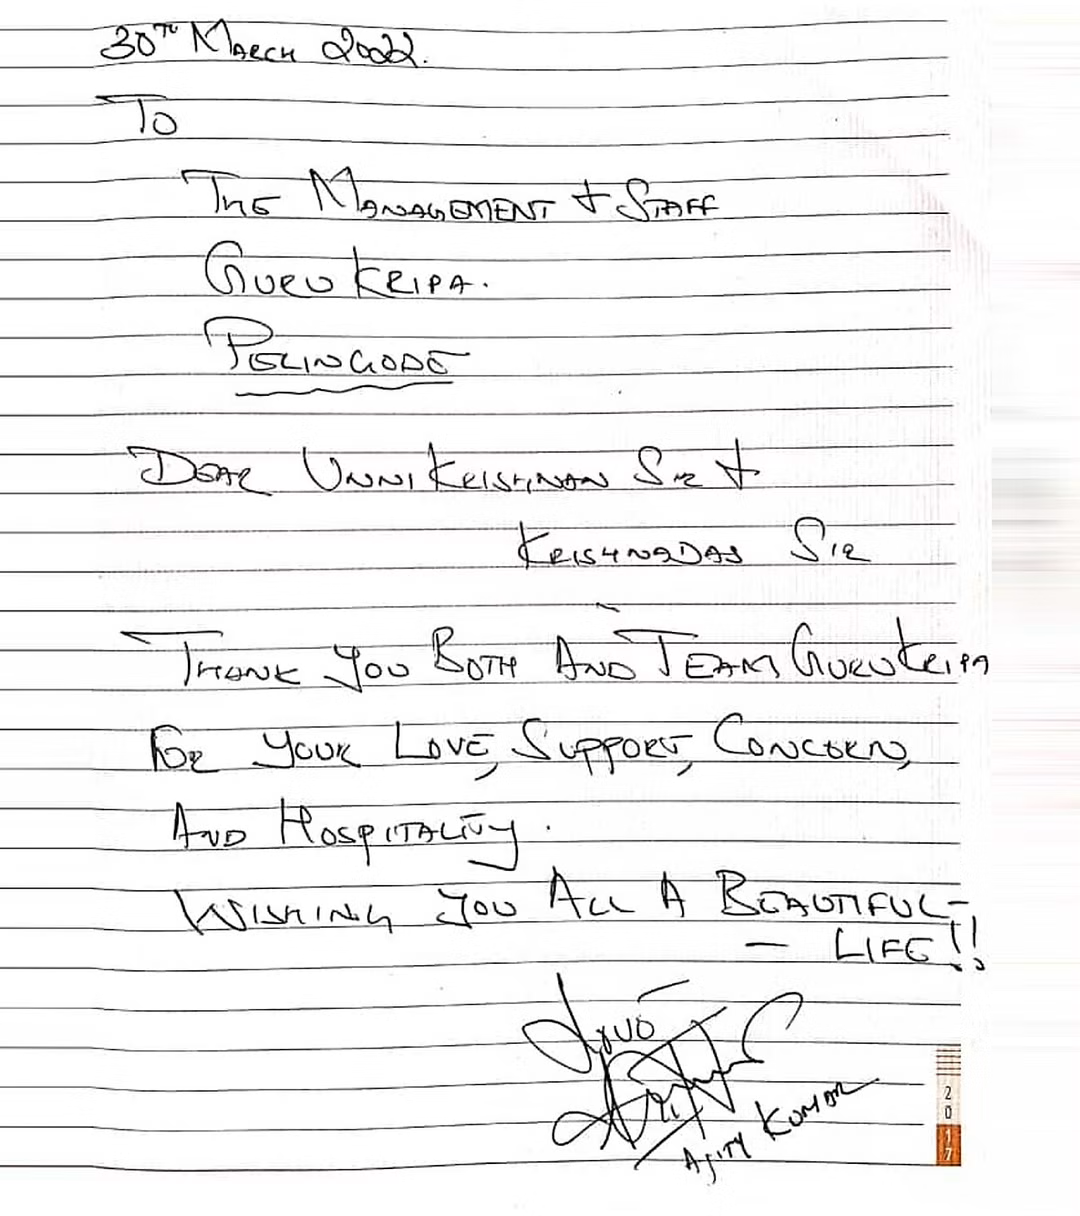 30TH MARCH 2022.
TO
THE MANAGEMENT & STAFF
GURUKRIPA.
PELINGODE
DEAR UNNIKRISHNAN SIR &
KRISHNADAS SIR
THANK YOU BOTH AND TEAM GURUKRIPA
FOR YOUR LOVE, SUPPORT, CONCERN,
AND HOSPITALITY.
WISHING YOU ALL A BEAUTIFUL-
- LIFE!!
Love
AJITH KUMAR
2017